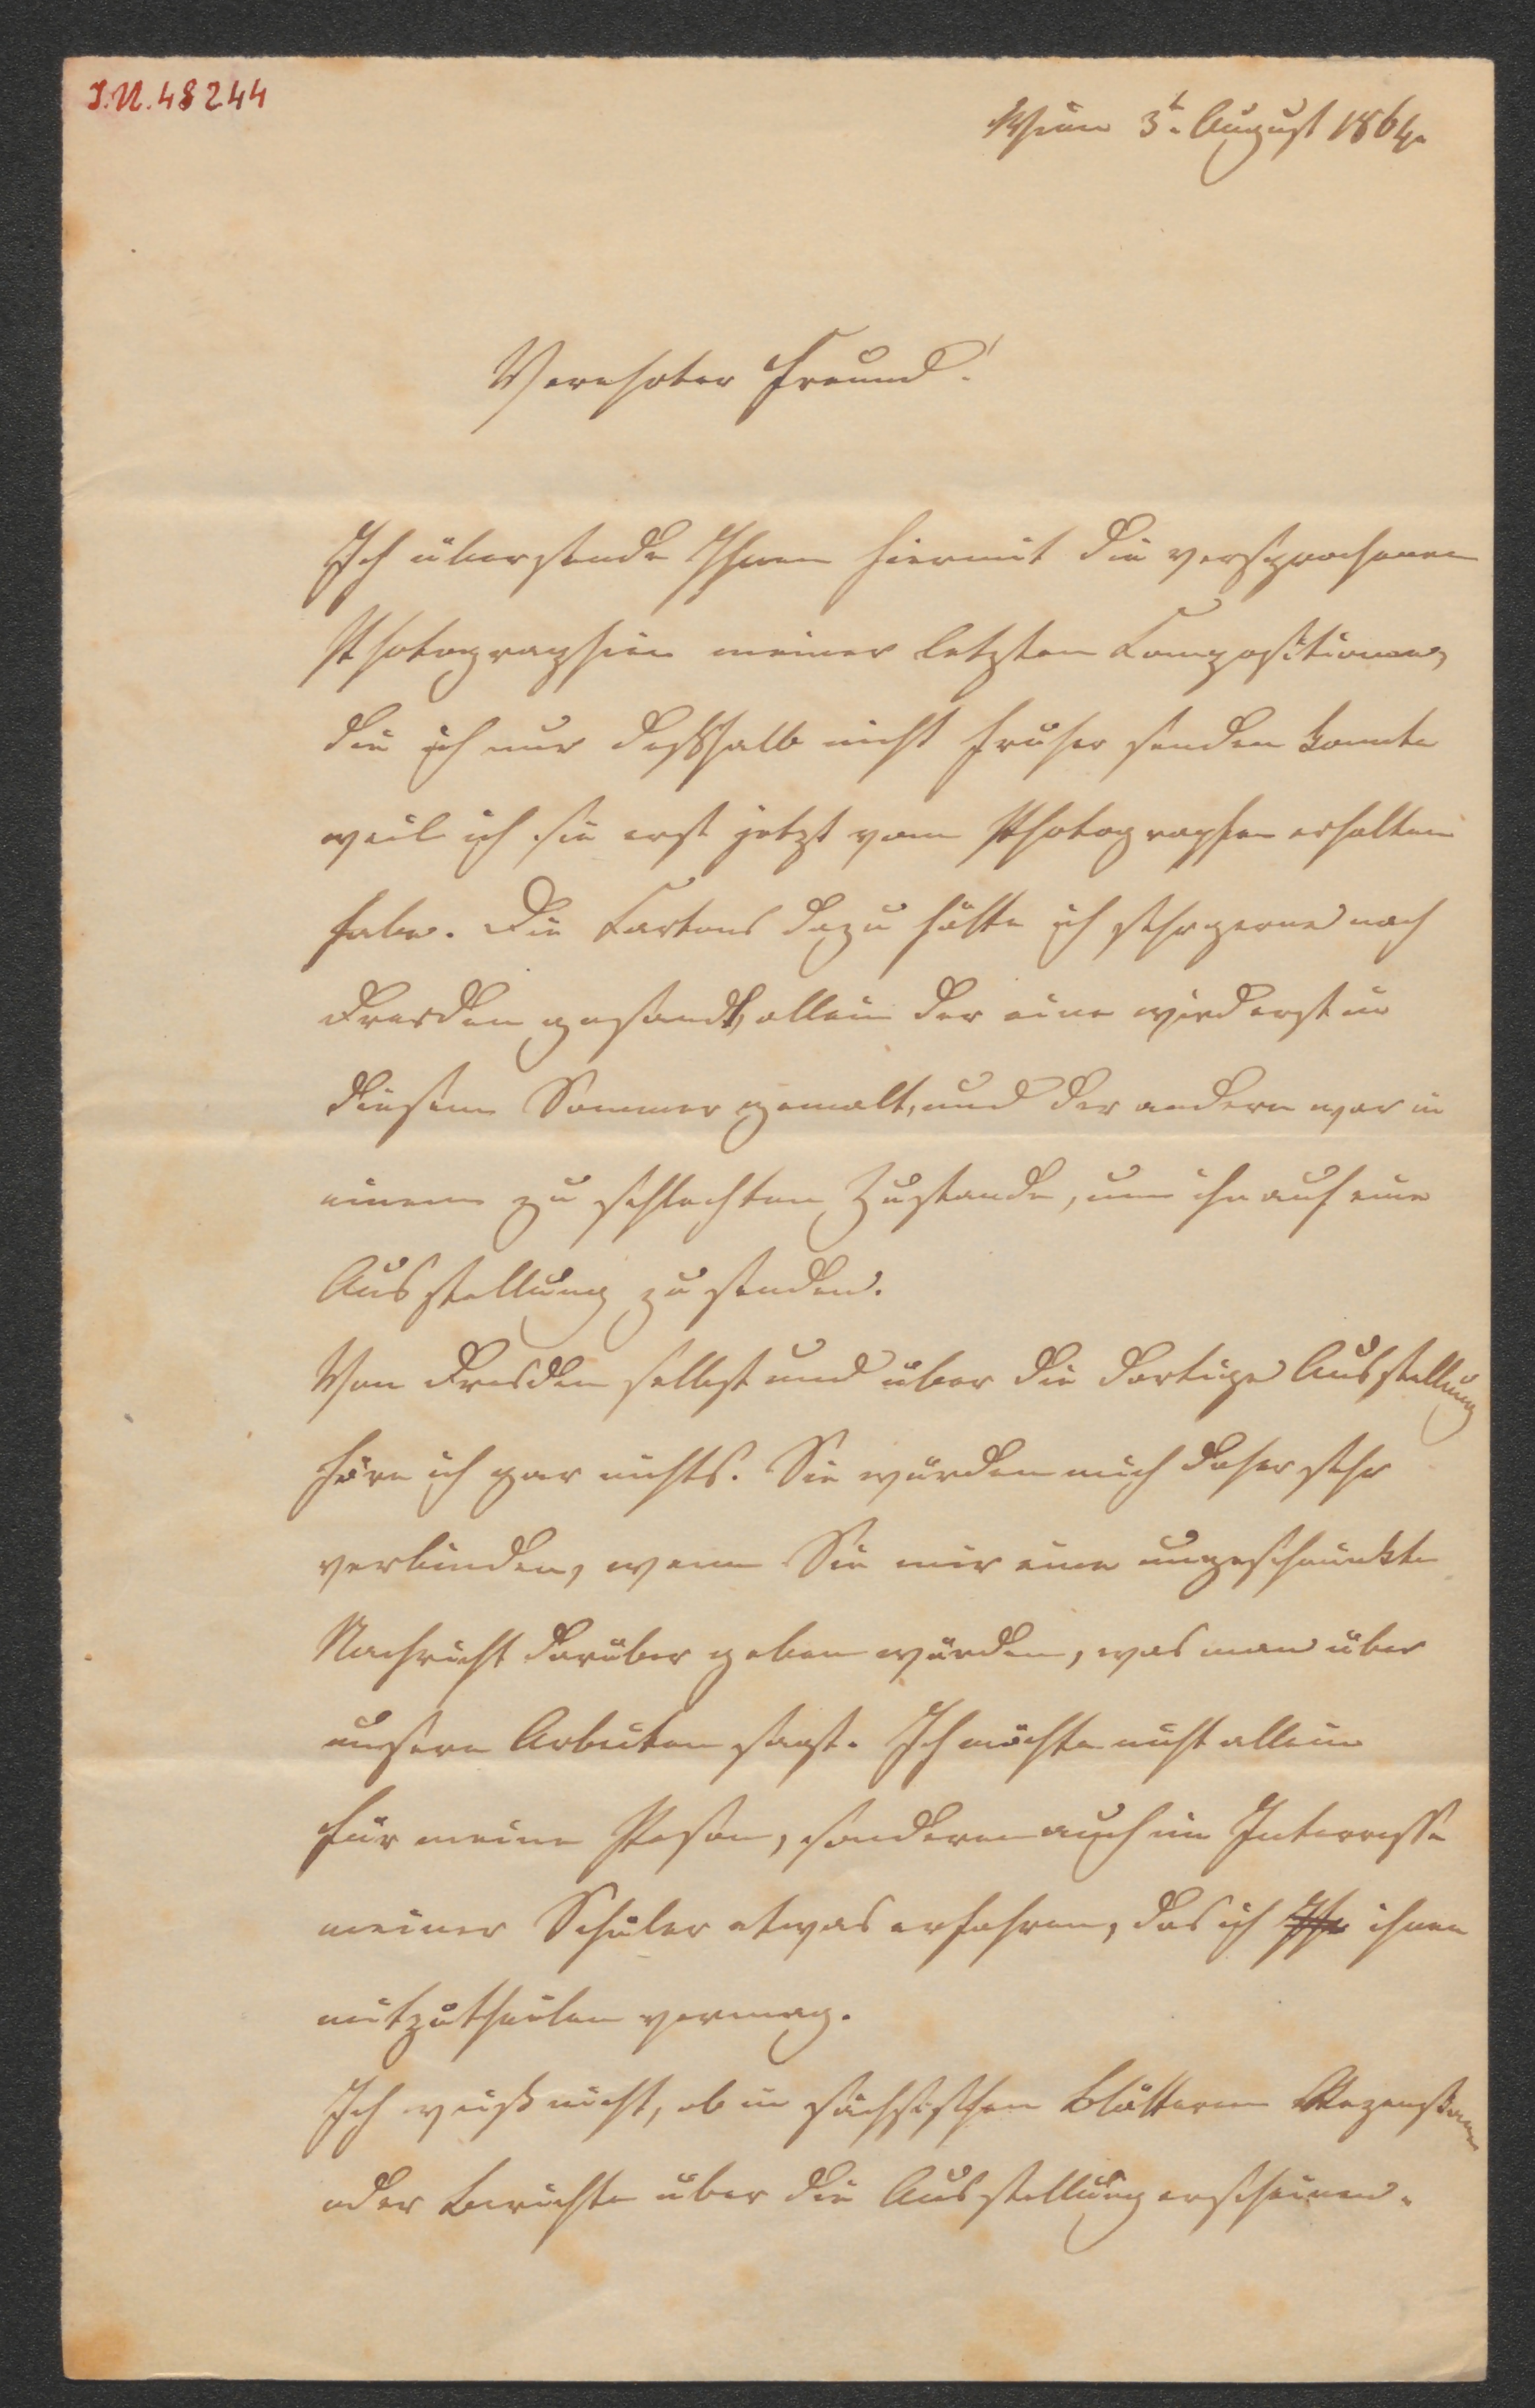 I.N. 48244
Wien 3t. August 1864.
Verehrter Freund!
Ich übersende Ihnen hiermit die versprochenen
Photographien meiner letzten Compositionen,
die ich nur deßhalb nicht früher senden konnte
weil ich sie erst jetzt vom Photographen erhalten
habe. Die Cartons dazu hätte ich sehr gerne nach
Dresden gesandt, allein der eine wird erst in
diesem Sommer gemalt, und der andere war in
einem zu schlechten Zustande, um ihn auf eine
Ausstellung zu senden.
Von Dresden selbst und über die dortige Ausstellung
höre ich gar nichts. Sie würden mich daher sehr
verbinden, wenn Sie mir eine ungeschminkte
Nachricht darüber geben würden, was man über
unsere Arbeiten sagt. Ich möchte nicht allein
für meine Person, sonderen auch im Interesse
meiner Schüler etwas erfahren, das ich Ihn ihnen
mitzutheilen vermag.
Ich weiß nicht, ob in sächsischen Blätteren Rezensionen
oder Berichte über die Ausstellung erscheinen.